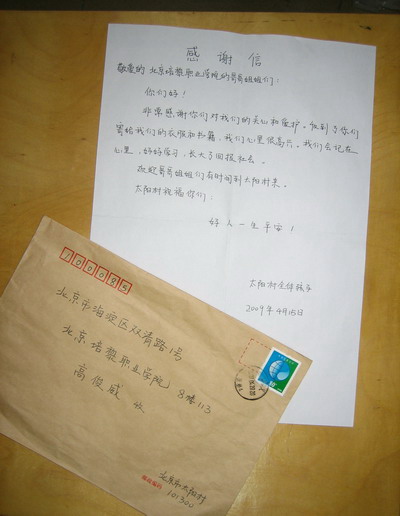 感谢信
敬爱的北京培黎职业学院的哥哥姐姐们：
你们好！
非常感谢你们对我们的关心和爱护。收到了你们
寄给我们的衣服和书籍，我们心里很高兴。我们会记在
心里，好好学习，长大了回报社会。
欢迎哥哥姐姐们有时间到太阳村来。
太阳村祝福你们：
好人一生平安！
太阳村全体孩子
2009年4月15日
100085
北京市海淀区双清路1号
北京培黎职业学院 8楼113
高俊威 收
北京市太阳村
邮政编码
101300